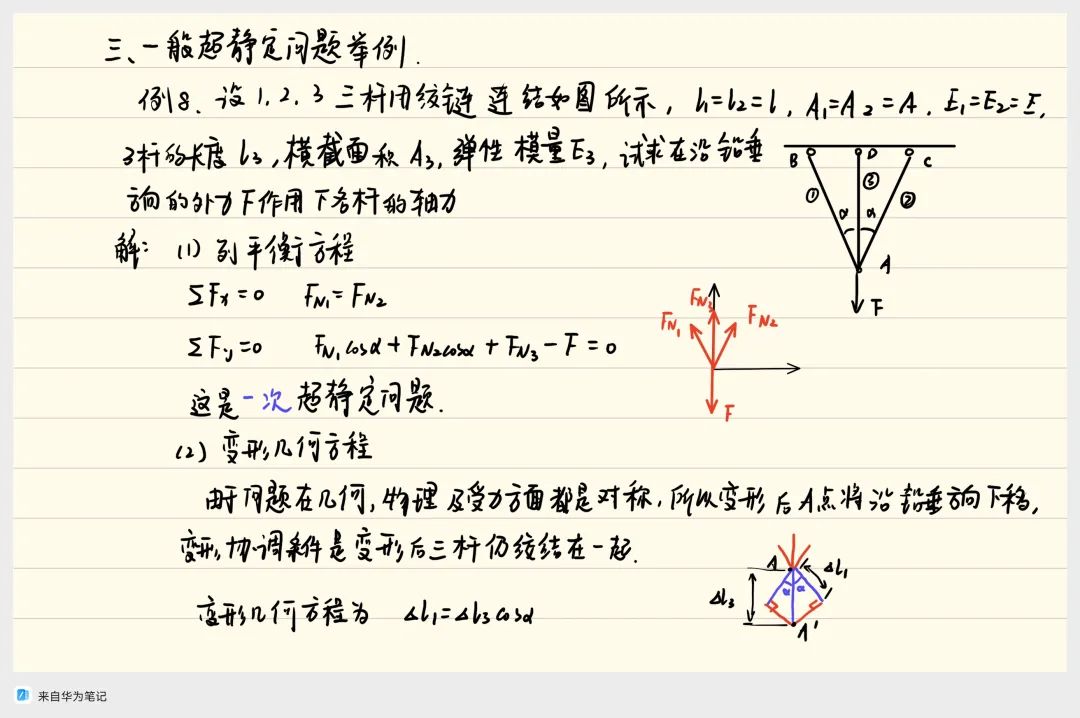 三、一般超静定问题举例.
例8. 设1, 2, 3 三杆用绞链连结如图所示, l₁=l₂=l, A₁=A₂=A, E₁=E₂=E,
3杆的长度 l₃, 横截面积 A₃, 弹性模量E₃, 试求在沿铅垂
方向的外力F作用下各杆的轴力
B D C
① ③ ②
α α
A
F
解: (1) 列平衡方程
ΣFx=0 FN₁=FN₂
ΣFy=0 FN₁cosα+FN₂cosα+FN₃-F=0
FN₃
FN₁ FN₂
F
这是一次超静定问题.
(2) 变形几何方程
由于问题在几何, 物理及受力方面都是对称, 所以变形后A点将沿铅垂方向下移,
变形协调条件是变形后三杆仍绞结在一起.
A Δl₁
α α
Δl₃
A'
变形几何方程为 Δl₁=Δl₃cosα
来自华为笔记